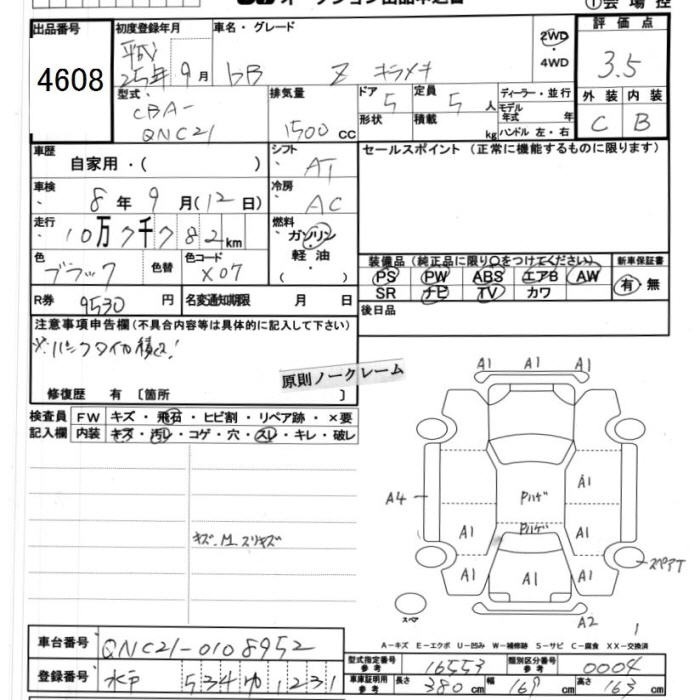 オークション出品申込書 ①会場控
出品番号 初度登録年月 車名・グレード 評価点
4608 平成 25年9月 bB Z キラメキ 2WD・4WD 3.5
型式 排気量 ドア 定員 ディーラー・並行 外装 内装
CBA-QNC21 1500cc 5 5人 モデル年式 年 C B
形状 積載 kg ハンドル左・右
車歴 自家用・( ) シフト AT セールスポイント(正常に機能するものに限ります)
車検 8年9月(12日) 冷房 AC
走行 10万7千782km 燃料 ガソリン・軽油・( )
色 ブラック 色替 色コード X07 装備品(純正品に限り○をつけてください) 新車保証書
PS PW ABS エアB AW 有・無
SR ナビ TV カワ
R券 9530円 名変通知期限 月 日 後日品
注意事項申告欄(不具合内容等は具体的に記入して下さい)
原則ノークレーム
修復歴 有〔箇所 〕
検査員記入欄 FW キズ・飛石・ヒビ割・リペア跡・×要
内装 キズ・汚レ・コゲ・穴・スレ・キレ・破レ
キズ、M、スリキズ
A1 A1 A1
A1
A4 Pハゲ
Pハゲ
A1 A1
A1 A1 A1 スペアT
スペア
A2
1
A-キズ E-エクボ U-凹み W-補修跡 S-サビ C-腐食 XX-交換済
車台番号 QNC21-0108952
登録番号 水戸 534 ゆ 1231
型式指定番号 参考 16553 類別区分番号 参考 0004
車庫証明用 参考 長さ 380cm 幅 169cm 高さ 163cm